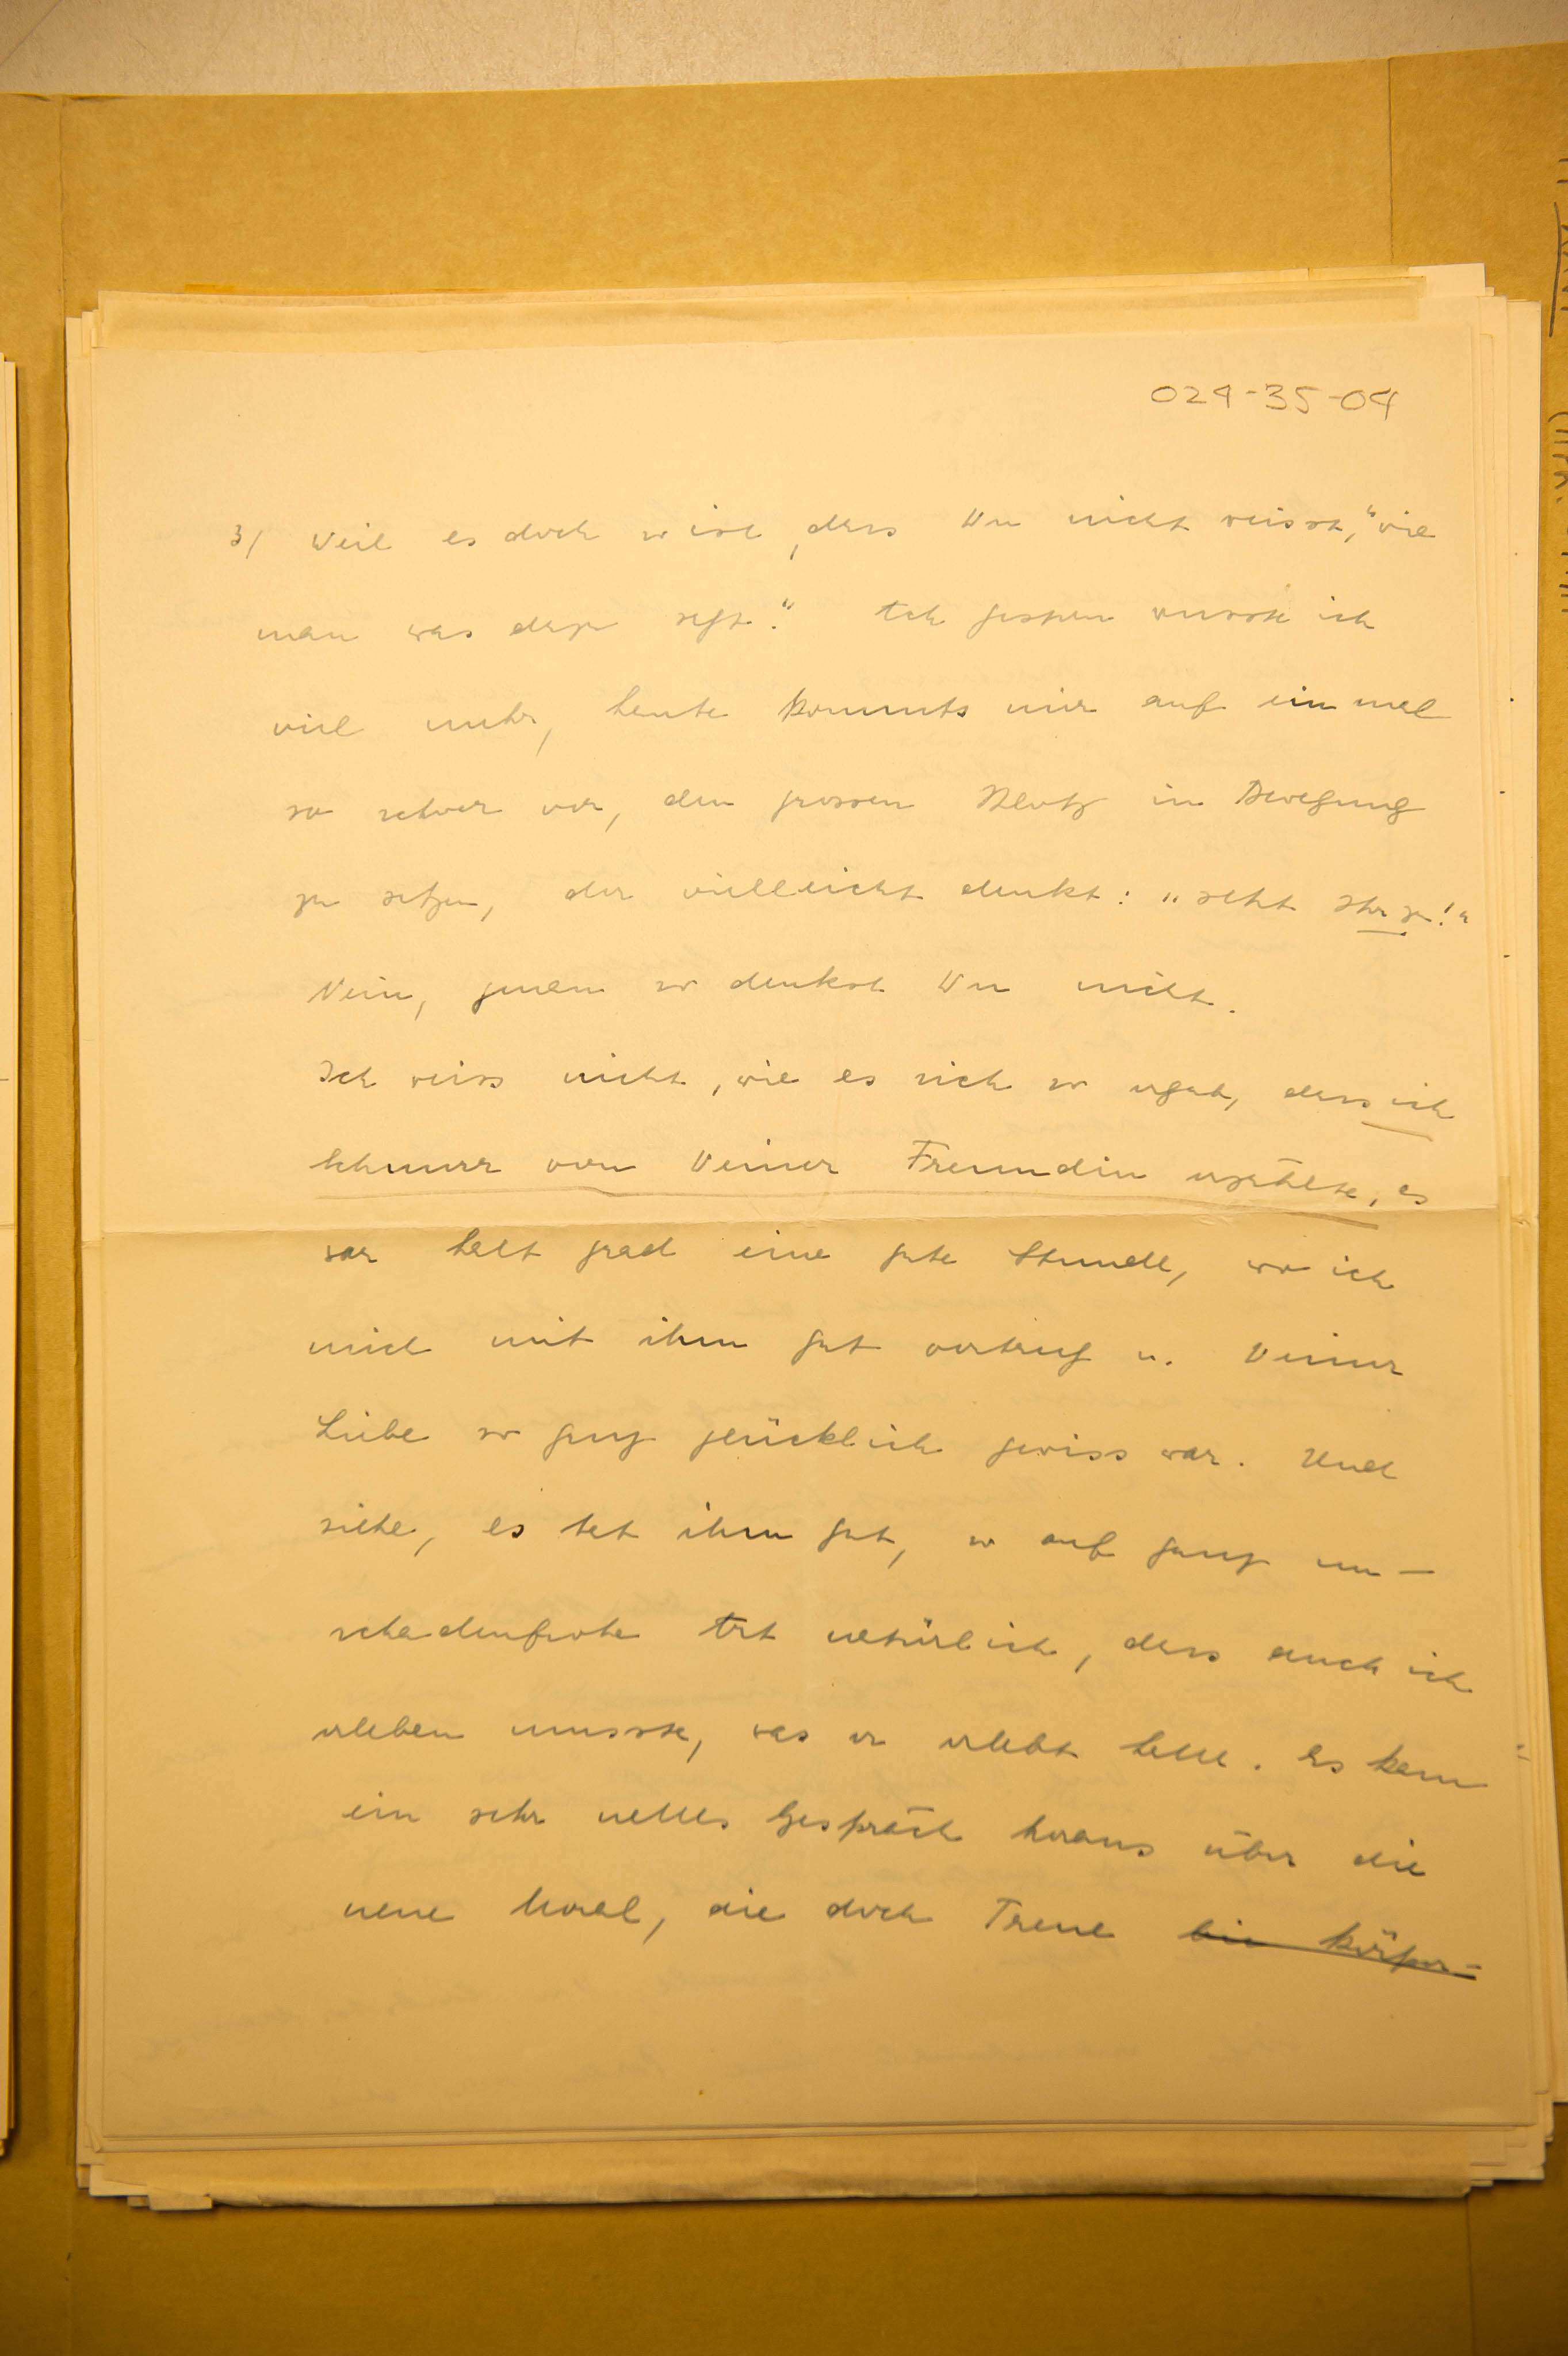 024-35-04
3/ Weil es doch so ist, dass Du nicht weisst, "wie
man was dazu sagt." Ach gestern wusste ich
viel mehr, heute kommts mir auf einmal
so schwer vor, den grossen Klotz in Bewegung
zu setzen, der vielleicht denkt: „seht Ihr zu!"
Nein, genau so denkst Du nicht.
Ich weiss nicht, wie es sich so ergab, dass ich
Schnurr von Deiner Freundin erzählte, es
war halt grad eine gute Stunde, wo ich
mich mit ihm gut vertrug u. Deiner
Liebe so ganz glücklich gewiss war. Und
siehe, es tat ihm gut, so auf ganz un-
schadenfrohe Art natürlich, dass auch ich
erleben musste, was er erlebt hatte. Es kam
ein sehr nettes Gespräch heraus über die
neue Moral, die doch Treue bis körper-